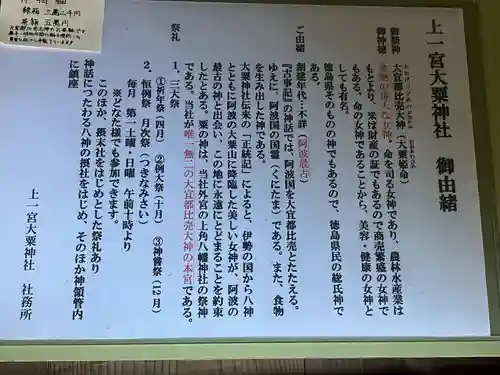 緑箱 二萬二千円
茶箱 五萬円
上一宮大粟神社 御由緒
御祭神 大宜都比売大神（大粟姫命）
御神徳
命を司る女神であり、農林水産業は
もとより、米は財産の証でもあるので商売繁盛の女神で
もある。命の女神であることから、美容・健康の女神と
しても有名。
徳島県そのものの神でもあるので、徳島県民の総氏神で
ある。
ご由緒 創建年代…不詳（阿波最古）
『古事記』の神話では、阿波国を大宜都比売とたたえる。
ゆえに、阿波国の国霊（くにたま）である。また、食物
を生み出した神である。
大粟神社伝来の「正統記」によると、伊勢の国から八神
とともに阿波の大粟山に降臨した美しい女神が、阿波の
最古の神と出会い、この地に永遠にとどまることを約束
したとある。粟の神は、当社外宮の上角八幡神社の祭神
である。当社が唯一無二の大宜都比売大神の本宮である。
祭礼 1．三大祭
①祈年祭（四月） ②例大祭（十月） ③神嘗祭（12月）
2．恒例祭 月次祭（つきなみさい）
毎月 第一土曜・日曜 午前十時より
※どなた様でも参加できます。
このほか、摂末社をはじめとした祭礼あり
神話につたわる八神の摂社をはじめ、そのほか神領管内
に鎮座
上一宮大粟神社 社務所